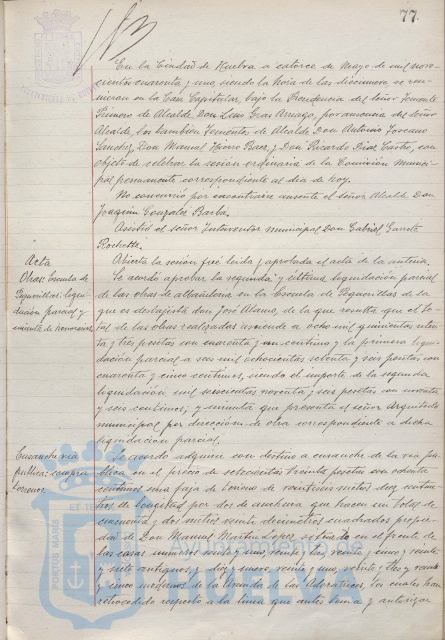 77.
En la Ciudad de Huelva a catorce de Mayo de mil nove-
cientos cuarenta y uno, siendo la hora de las diecinueve, se reu-
nieron en la Casa Capitular, bajo la Presidencia del señor Teniente
Primero de Alcalde Don Luis Gras Arriaga, por ausencia del señor
Alcalde, los también Tenientes de Alcalde Don Antonio Toscano
Sanchez, Don Manuel Baez, y Don Ricardo Diaz Castro, con
objeto de celebrar la sesión ordinaria de la Comisión Munici-
pal permanente correspondiente al día de hoy.
No concurrió por encontrarse ausente el señor Alcalde Don
Joaquín González Barba.
Asistió el señor Interventor municipal Don Gabriel Garrote
Rochette.
Acta
Abierta la sesión fué leída y aprobada el acta de la anterior.
Obras Escuela de
Pequerillas: liqui-
dación parcial y
minuta de honorarios
Se acordó aprobar la segunda y última liquidación parcial
de las obras de albañilería en la Escuela de Pequerillas de la
que es destajista don José Alamo, de la que resulta que el to-
tal de las obras realizadas asciende a ocho mil quinientas seten-
ta y tres pesetas con cuarenta y un centimo y la primera liqui-
dación parcial a seis mil ochocientas setenta y seis pesetas con
cuarenta y cinco centimos, siendo el importe de la segunda
liquidación mil seiscientas noventa y seis pesetas con noventa
y seis centimos; y minuta que presenta el señor Arquitecto
municipal por dirección de obra correspondiente a dicha
liquidación parcial.
Ensanche vía
pública: compra
terrenos.
Se acordó adquirir con destino a ensanche de la vía pú-
blica en el precio de setecientas veinte pesetas con ochenta
centimos una faja de terreno de veintiseis metros diez centíme-
tros de longitud por dos de anchura que hacen un total de
cincuenta y dos metros veinte decimetros cuadrados propie-
dad de Don Manuel Martin Lopez, y sita en el frente de
las casas números veinte y uno, veinte y tres, veinte y cinco y veinte
y siete antiguos, y diez y nueve, veinte y uno, veinte y tres y veinte
y cinco modernos de la Avenida de las Adoratrices, los cuales han
retrocedido respecto a la línea que antes tenia y autorizar
PORTUS MARIS ET TERRAE
Ayuntamiento de
HUELVA